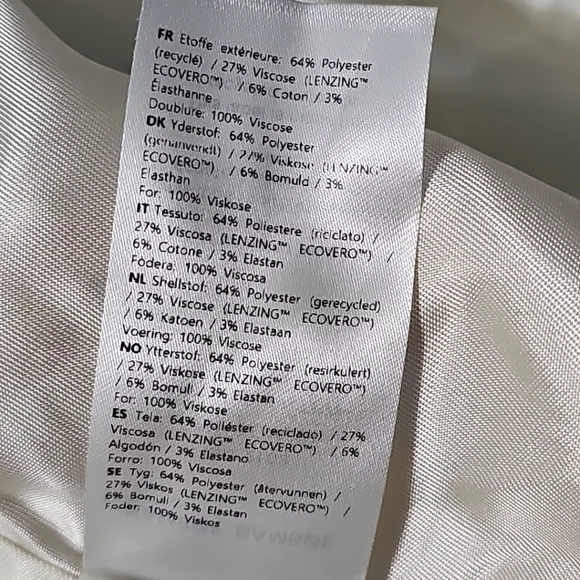 FR Etoffe extérieure: 64% Polyester
(recyclé) / 27% Viscose (LENZING™
ECOVERO™) / 6% Coton / 3%
Élasthanne
Doublure: 100% Viscose
DK Yderstof: 64% Polyester
(genanvendt) / 27% Viskose (LENZING™
ECOVERO™) / 6% Bomuld / 3%
Elasthan
For: 100% Viskose
IT Tessuto: 64% Poliestere (riciclato) /
27% Viscosa (LENZING™ ECOVERO™) /
6% Cotone / 3% Elastan
Fodera: 100% Viscosa
NL Shellstof: 64% Polyester (gerecycled)
/ 27% Viscose (LENZING™ ECOVERO™)
/ 6% Katoen / 3% Elastaan
Voering: 100% Viscose
NO Ytterstof: 64% Polyester (resirkulert)
/ 27% Viskose (LENZING™ ECOVERO™)
/ 6% Bomull / 3% Elastan
For: 100% Viskose
ES Tela: 64% Poliéster (reciclado) / 27%
Viscosa (LENZING™ ECOVERO™) / 6%
Algodón / 3% Elastano
Forro: 100% Viscosa
SE Tyg: 64% Polyester (återvunnen) /
27% Viskos (LENZING™ ECOVERO™) /
6% Bomull / 3% Elastan
Foder: 100% Viskos